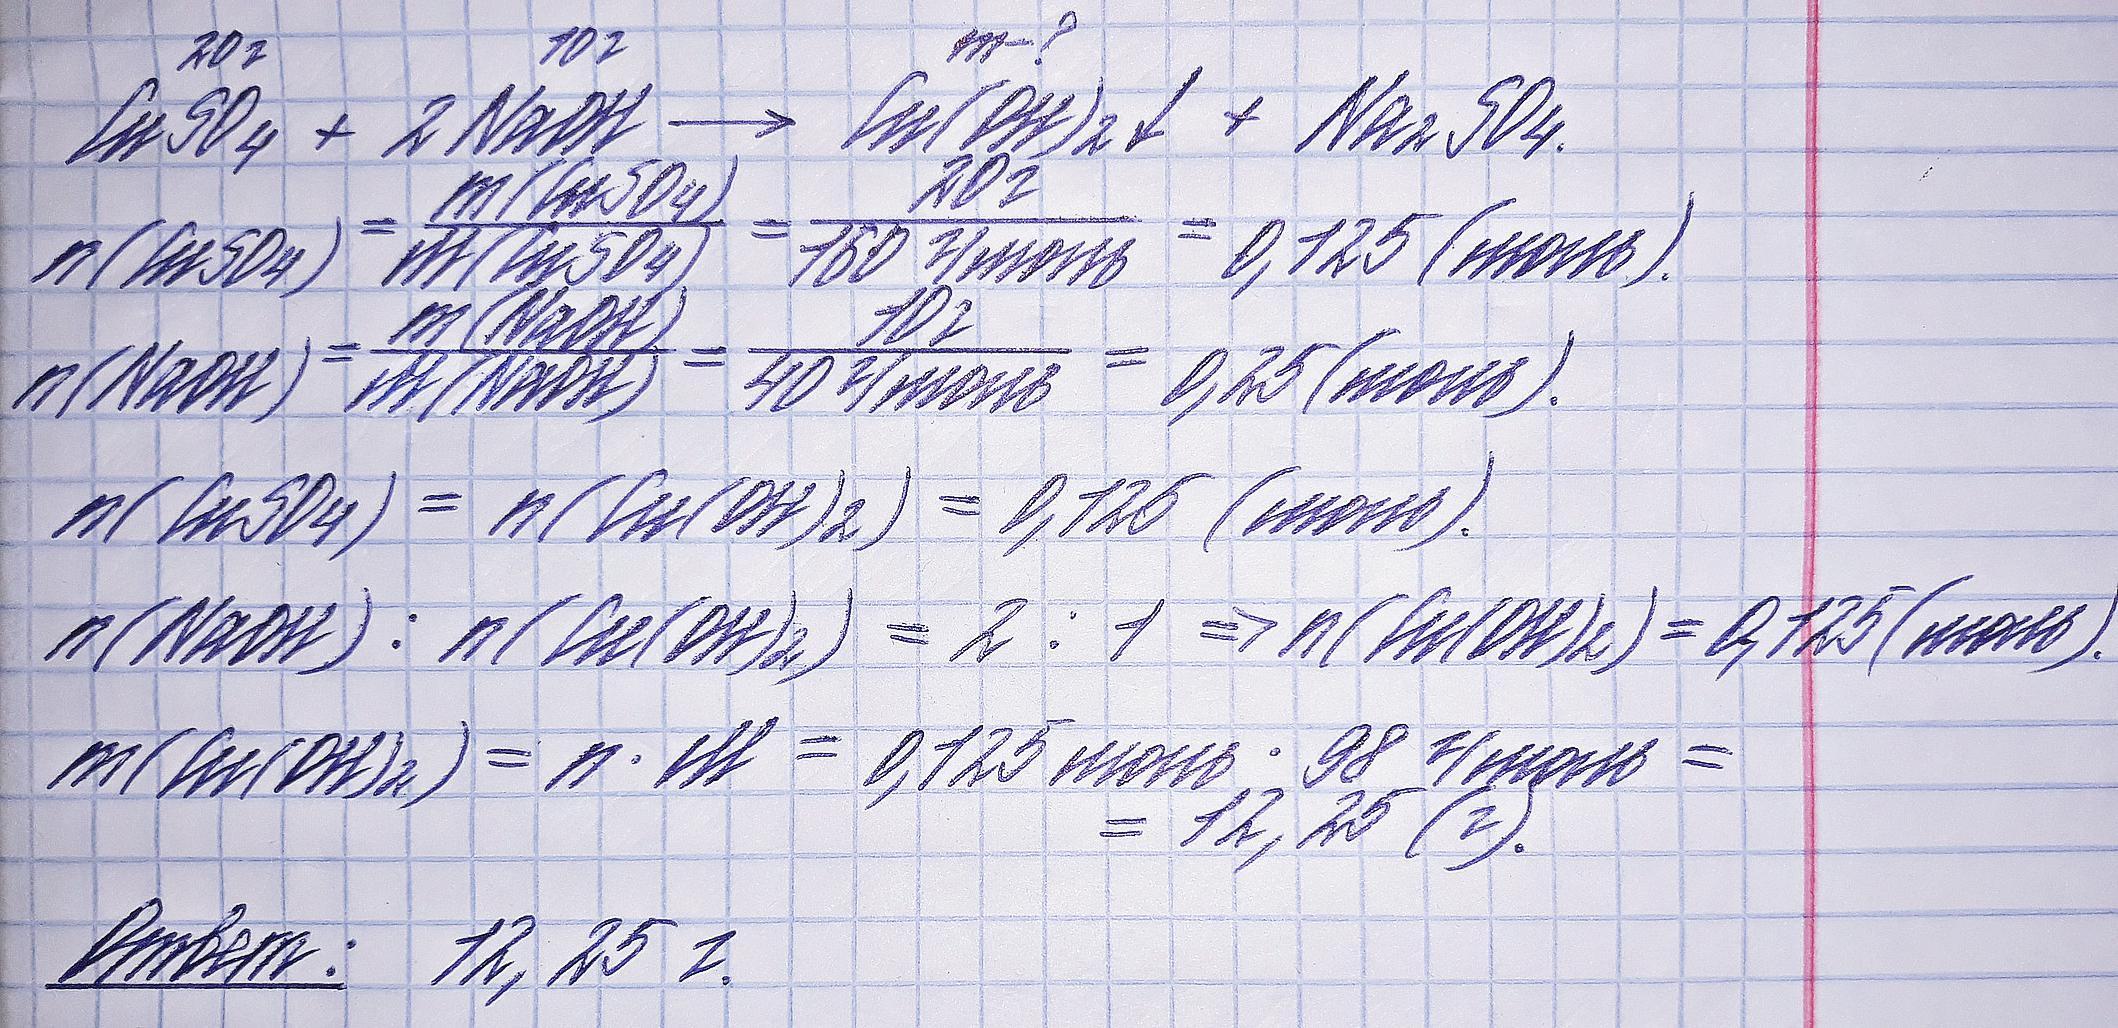 20г 10г m-?
CuSO₄ + 2NaOH → Cu(OH)₂↓ + Na₂SO₄.
n(CuSO₄) = m(CuSO₄)/M(CuSO₄) = 20г/160 г/моль = 0,125 (моль).
n(NaOH) = m(NaOH)/M(NaOH) = 10г/40 г/моль = 0,25 (моль).
n(CuSO₄) = n(Cu(OH)₂) = 0,125 (моль).
n(NaOH) : n(Cu(OH)₂) = 2 : 1 => n(Cu(OH)₂) = 0,125 (моль).
m(Cu(OH)₂) = n · M = 0,125 моль · 98 г/моль =
= 12,25 (г).
Ответ: 12,25 г.